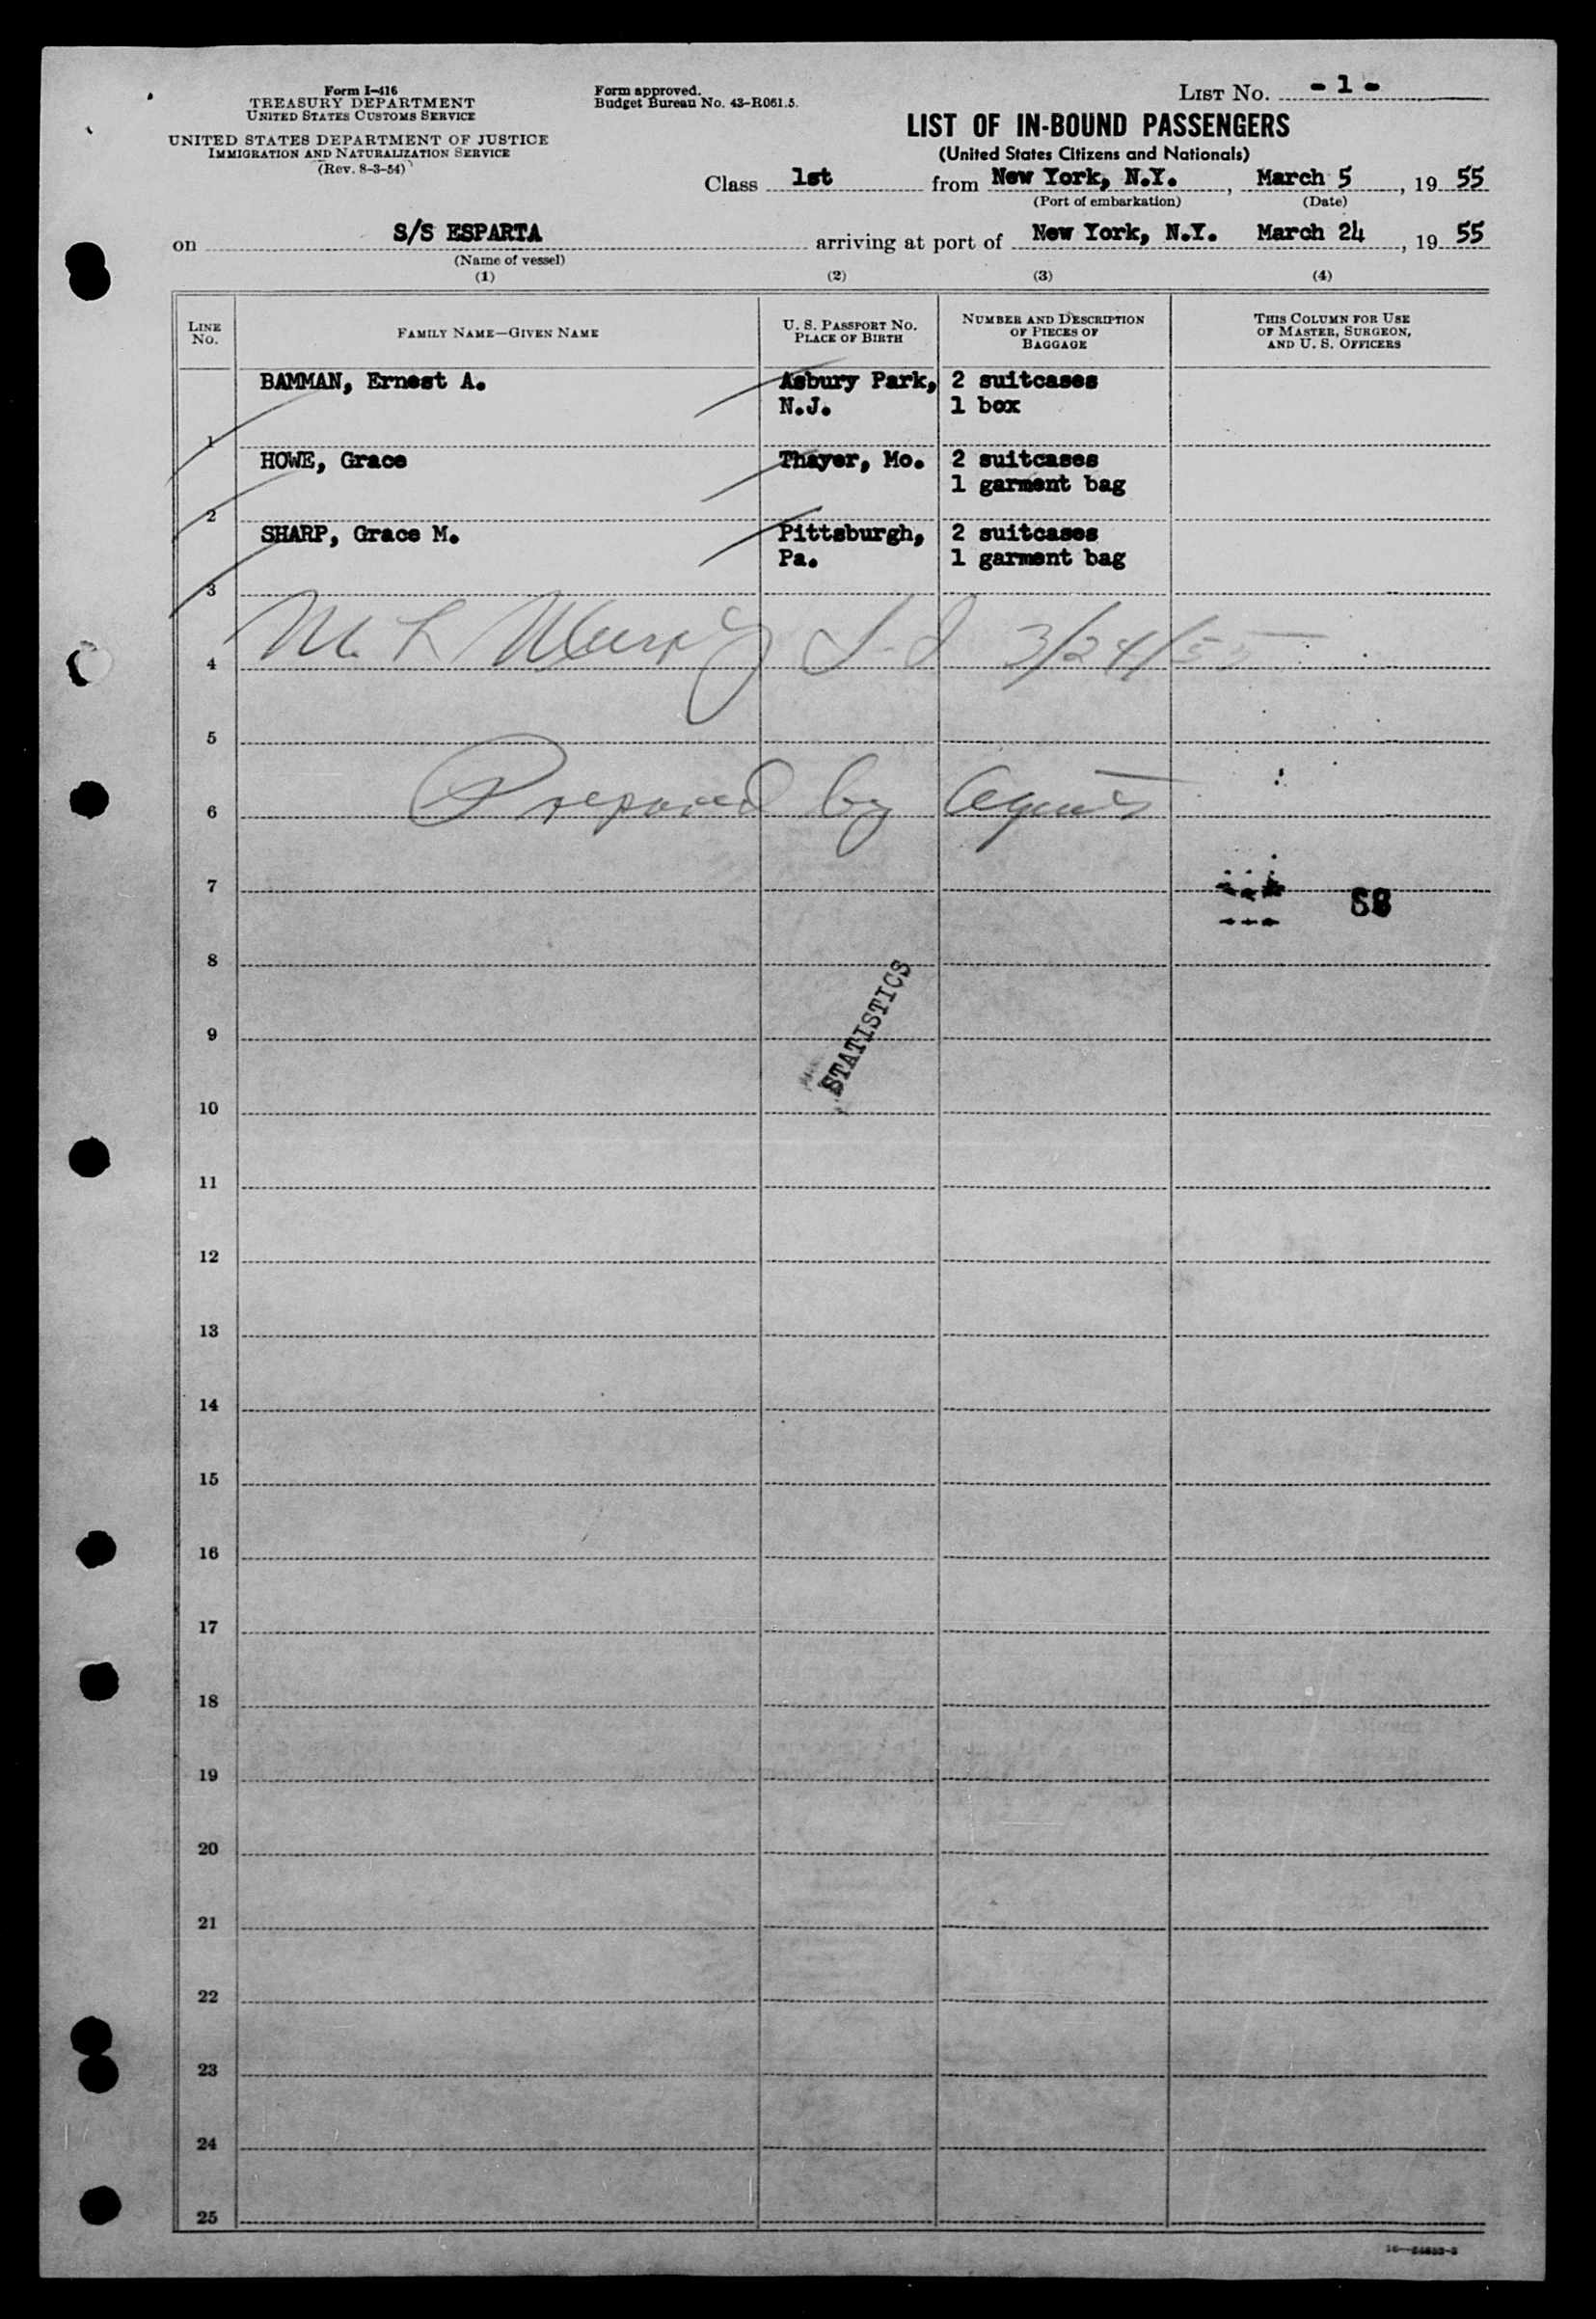 Form I-416
TREASURY DEPARTMENT
UNITED STATES CUSTOMS SERVICE
UNITED STATES DEPARTMENT OF JUSTICE
IMMIGRATION AND NATURALIZATION SERVICE
(Rev. 8-3-54)
Form approved.
Budget Bureau No. 43-R061.5.
LIST No. - 1 -
LIST OF IN-BOUND PASSENGERS
(United States Citizens and Nationals)
Class 1st from New York, N.Y., March 5, 19 55
(Port of embarkation) (Date)
on S/S ESPARTA arriving at port of New York, N.Y. March 24, 19 55
(Name of vessel)
(1) (2) (3) (4)
LINE No.
FAMILY NAME—GIVEN NAME
U. S. PASSPORT NO.
PLACE OF BIRTH
NUMBER AND DESCRIPTION
OF PIECES OF
BAGGAGE
THIS COLUMN FOR USE
OF MASTER, SURGEON,
AND U. S. OFFICERS
BAMMAN, Ernest A. Asbury Park, 2 suitcases
N.J. 1 box
1
HOWE, Grace Thayer, Mo. 2 suitcases
1 garment bag
2
SHARP, Grace M. Pittsburgh, 2 suitcases
Pa. 1 garment bag
3
M. L 3/24/55
4
5
Prepared by Agents
6
7
SB
8
STATISTICS
9
10
11
12
13
14
15
16
17
18
19
20
21
22
23
24
25